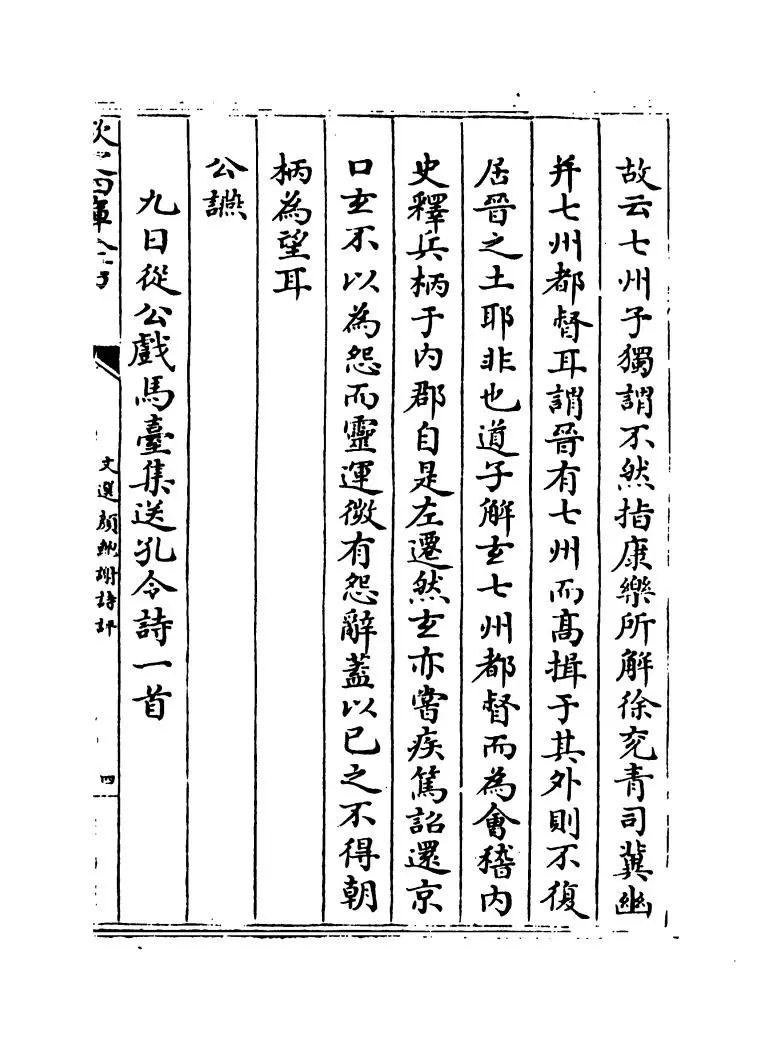 故云七州予獨謂不然指康樂所解徐兖青司冀幽
并七州都督耳謂晉有七州而髙揖于其外則不復
居晉之土耶非也道子解玄七州都督而為會稽内
史釋兵柄于内郡自是左遷然玄亦嘗疾篤詔還京
口玄不以為怨而靈運微有怨辭蓋以已之不得朝
柄為望耳
公讌
九日從公戲馬臺集送孔令詩一首
文選顔鮑謝詩評
四